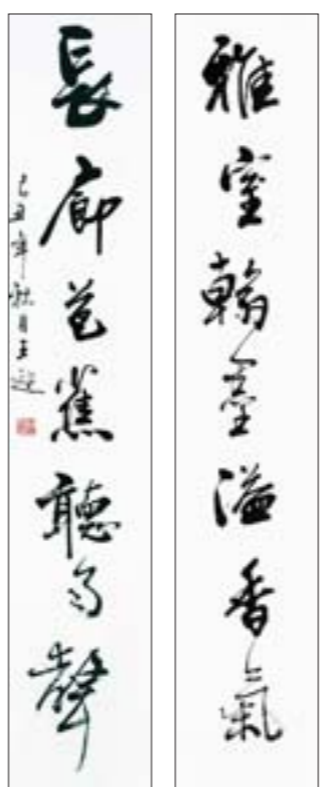 雅室翰墨溢香氣
長廊芭蕉聽雨聲
己丑年秋月王迎